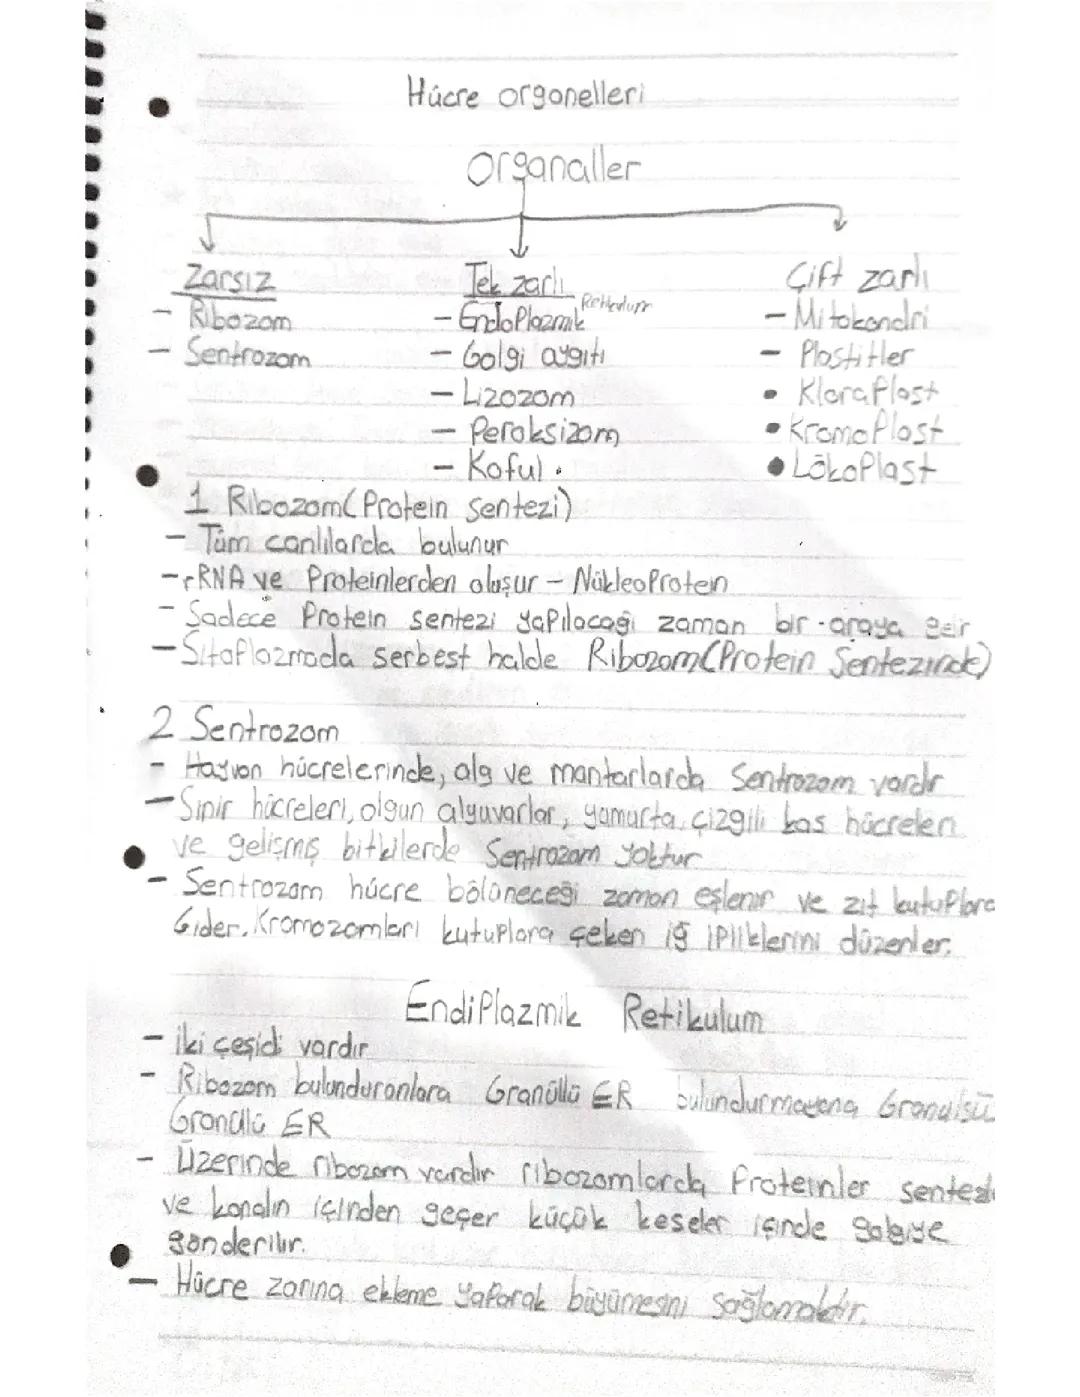 Hücre organelleri
Organaller
Zarsız
- Ribozom
- Sentrozom
Tek zarlı
- EndoPlazmik Retikulum
- Golgi aygıtı
- Lizozom
- Peroksizom
- Koful.
Çift zarlı
- Mitokondri
- Plastitler
• KloroPlast
• KromoPlast
• LökoPlast
1 Ribozom(Protein sentezi)
- Tüm canlılarda bulunur
- rRNA ve Proteinlerden oluşur - NükleoProtein
- Sadece Protein sentezi yaPılacağı zaman bir araya gelir
- SitoPlazmada serbest halde Ribozom(Protein Sentezinde)
2 Sentrozom
- Hayvan hücrelerinde, alg ve mantarlarda Sentrozom vardır
- Sinir hücreleri, olgun alyuvarlar, yumurta, çizgili kas hücreleri
ve gelişmiş bitkilerde Sentrozom yoktur
- Sentrozom hücre bölüneceği zaman eşlenir ve zıt kutuPlara
Gider. Kromozomları kutuPlara çeken iğ iPliklerini düzenler.
EndiPlazmik Retikulum
- iki çeşidi vardır
- Ribozom bulunduranlara Granüllü ER bulundurmayana Granülsü
Granüllü ER
- Üzerinde ribozom vardır ribozomlarda Proteinler sentezle
ve kanalın içinden geçer küçük keseler içinde golgiye
gönderilir.
- Hücre zarına ekleme yaParak büyümesini sağlamaktır.